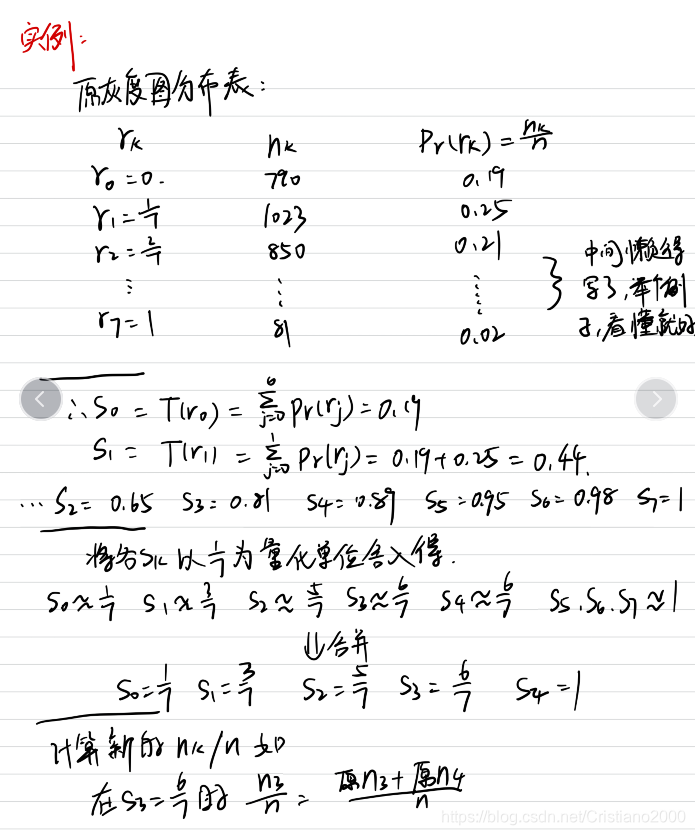 实例:
原灰度图分布表:
rk nk Pr(rk) = nk/n
r0 = 0. 790 0.19
r1 = 1/7 1023 0.25
r2 = 2/7 850 0.21
⋮ ⋮ ⋮
r7 = 1 81 0.02
} 中间懒得
写了,举个例
子,看懂就好
∴ S0 = T(r0) = Σ(j=0→0) Pr(rj) = 0.19
S1 = T(r1) = Σ(j=0→1) Pr(rj) = 0.19+0.25 = 0.44.
… S2 = 0.65 S3 = 0.81 S4 = 0.89 S5 = 0.95 S6 = 0.98 S7 = 1
将各Sk以1/7为量化单位舍入得.
S0≈1/7 S1≈3/7 S2≈5/7 S3≈6/7 S4≈6/7 S5.S6.S7≈1
⇓合并
S0=1/7 S1=3/7 S2=5/7 S3=6/7 S4=1
计算新的 nk/n 如
在S3=6/7时 n3/n = (原n3+原n4)/n
https://blog.csdn.net/Cristiano2000